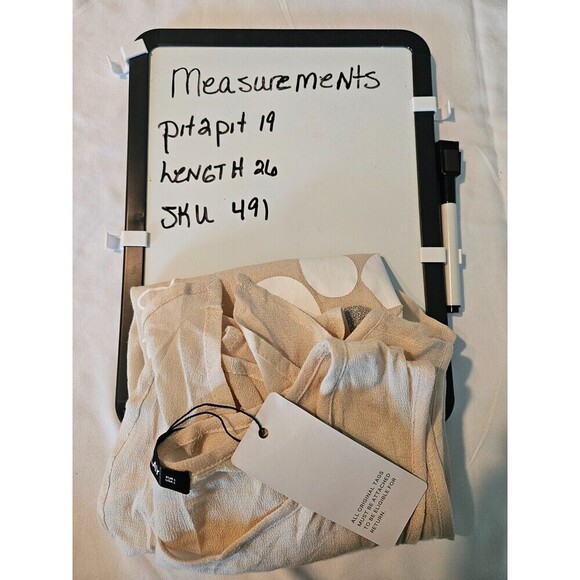 Measurements
pit2pit 19
LENGTH 26
SKU 491
ALL ORIGINAL TAGS
MUST BE ATTACHED
TO BE ELIGIBLE FOR
RETURN.